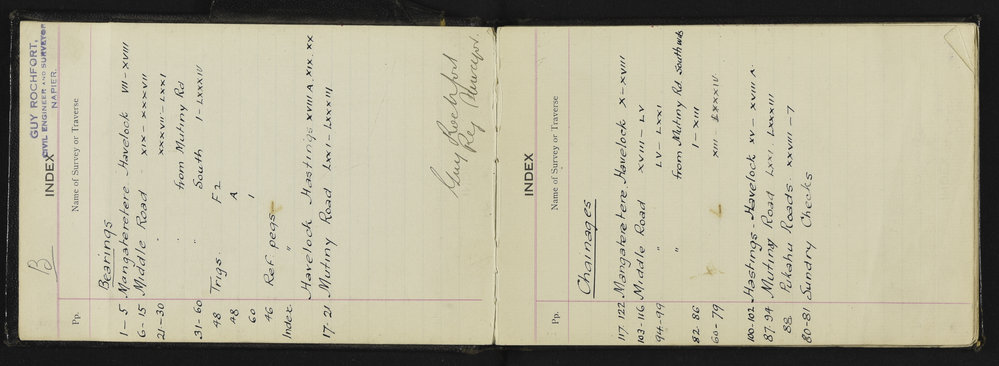 GUY ROCHFORT,
CIVIL ENGINEER AND SURVEYOR
NAPIER.
B
INDEX
Pp. Name of Survey or Traverse
Bearings
1-5 Mangateretere. Havelock VII-XVIII
6-15 Middle Road - XIX-XXXVII
21-30 " XXXVII-LXXI
from Mutiny Rd
31-60 " South I-LXXXIV
Trigs.
48 F2
48 A
60 1
46 Ref pegs
Index "
Havelock Hastings XVIII A. XIX. XX
17-21 Mutiny Road LXXI-LXXXIII
Guy Rochfort
Reg Surveyor.
INDEX
Pp. Name of Survey or Traverse
Chainages
117-122 Mangateretere. Havelock X-XVIII
103-116 Middle Road XVIII-LV
94-99 " LV-LXXI
" from Mutiny Rd. Southwds
82-86 I-XIII
60-79 XIII-LXXXIV
100-102 Hastings-Havelock XV-XVIII A.
87-94 Mutiny Road LXXI, LXXXIII
88 Pukahu Roads. XXVIII-7
80-81 Sundry Checks